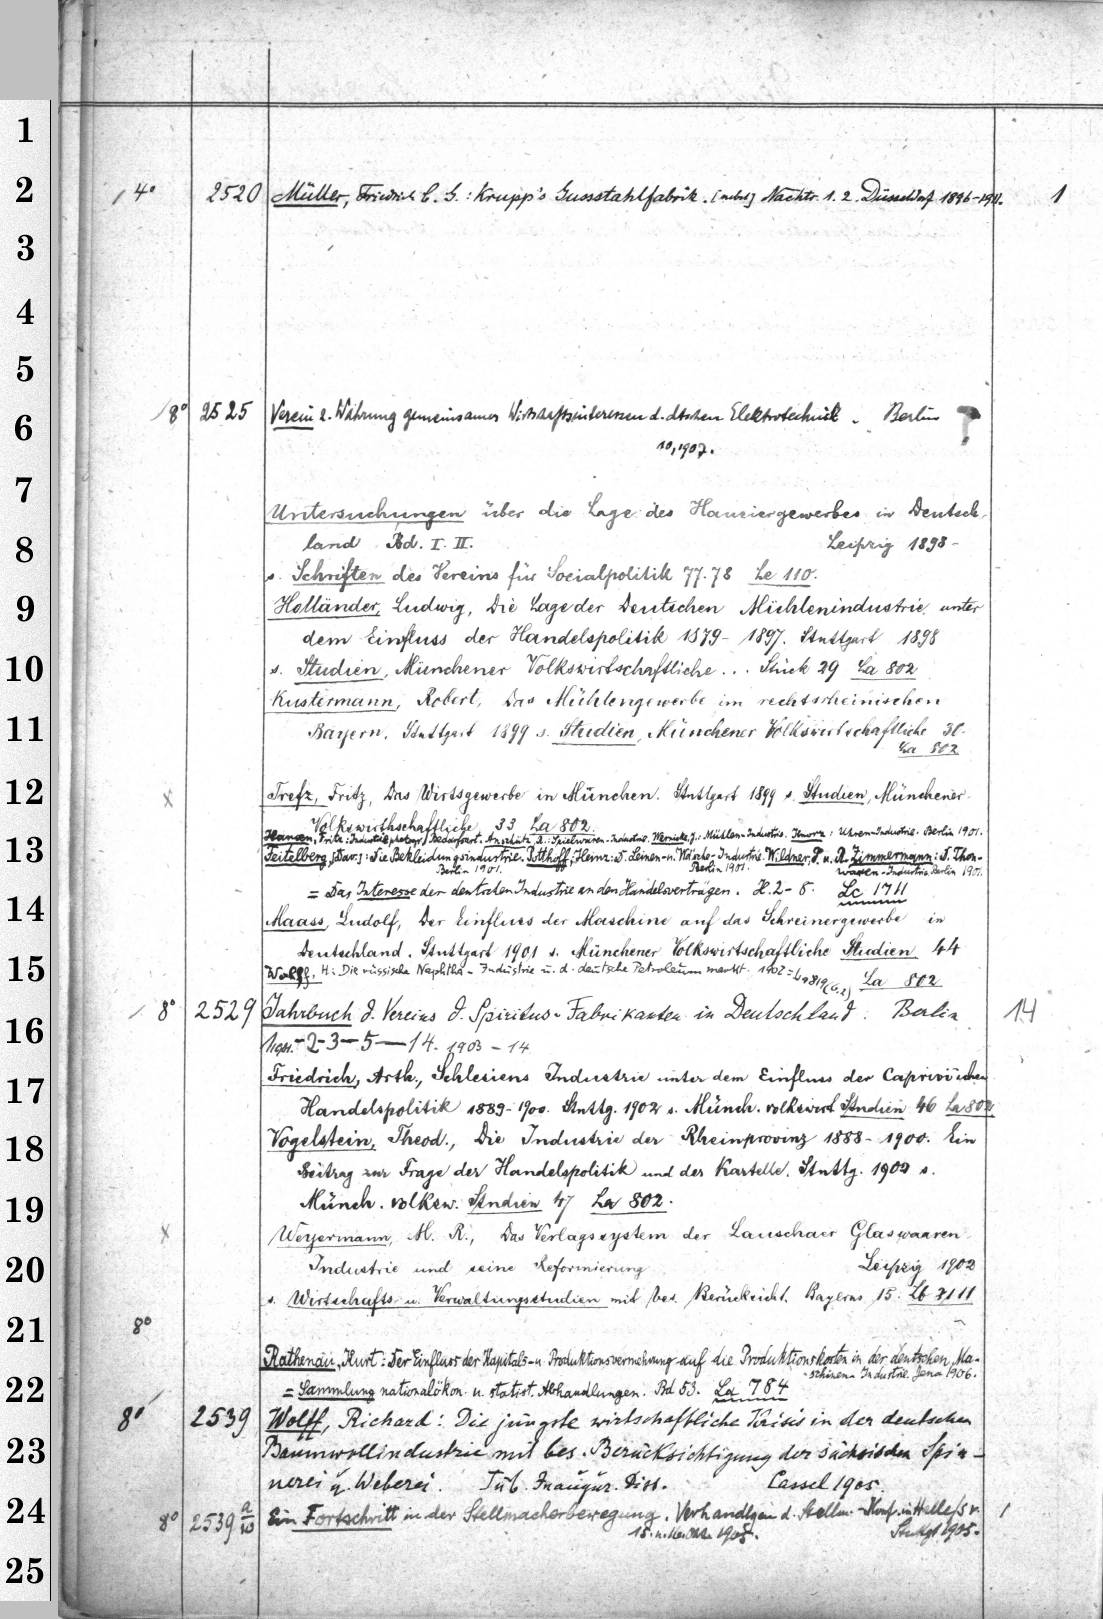 1
2
4° 2520 Müller, Friedrich C. G.: Krupp's Gussstahlfabrik. Nachtr. 1. 2. Düsseldorf 1896- 1
3
4
5
8° 2525 Verein z. Währung gemeinsamer Wirtschaftsinteressen d. dtschen Elektrotechnik. Berlin ?
6
10, 1907.
7
Untersuchungen über die Lage des Hausiergewerbes in Deutsch-
8
land Bd. I. II. Leipzig 1898-
s. Schriften des Vereins für Socialpolitik 77. 78 Le 110.
9
Holländer, Ludwig, Die Lage der Deutschen Mühlenindustrie unter
dem Einfluss der Handelspolitik 1879-1897. Stuttgart 1898
10
s. Studien, Münchener Volkswirtschaftliche... Stück 29 La 802
Kustermann, Robert, Das Mühlengewerbe im rechtsrheinischen
11
Bayern. Stuttgart 1899 s. Studien, Münchener Volkswirtschaftliche 31.
La 802
12
x Trefz, Fritz, Das Wirtsgewerbe in München. Stuttgart 1899 s. Studien, Münchener
Volkswirthschaftliche 33 La 802.
Hansen, Fritz: Industrie photogr. Bedarfsart. Anschütz, R.: Spielwaren-Industrie. Wernicke, J.: Mühlen-Industrie. Knorz: Uhren-Industrie. Berlin 1901.
13
Feitelberg, Dav.: Die Bekleidungsindustrie. Potthoff, Heinr.: D. Leinen- u. Wäsche-Industrie. Wildner, F. u. R. Zimmermann: D. Thon-
Berlin 1901. Berlin 1901. waaren-Industrie Berlin 1901.
= Das Interesse der deutschen Industrie an den Handelsverträgen. H. 2-8. Lc 1711
14
Maass, Ludolf, Der Einfluss der Maschine auf das Schreinergewerbe in
Deutschland. Stuttgart 1901 s. Münchener Volkswirtschaftliche Studien 44
15
Wolff, H: Die russische Naphtha-Industrie u. d. deutsche Petroleummarkt. 1902 = La 819 (6.2) La 802
8° 2529 Jahrbuch d. Vereins d. Spiritus-Fabrikanten in Deutschland. Berlin 14
16
-2-3-5—14. 1903-14
17
Friedrich, Arth., Schlesiens Industrie unter dem Einfluss der Caprivi'schen
Handelspolitik 1889-1900. Stuttg. 1902 s. Münch. volkswirt Studien 46 La 802
18
Vogelstein, Theod., Die Industrie der Rheinprovinz 1888-1900. Ein
Beitrag zur Frage der Handelspolitik und der Kartelle. Stuttg. 1902 s.
19
Münch. volksw. Studien 47 La 802.
x Weyermann, M. R., Das Verlagssystem der Lauschaer Glaswaaren
20
Industrie und seine Reformierung Leipzig 1902
s. Wirtschafts- u. Verwaltungsstudien mit bes. Berücksicht. Bayerns 15. Lb 3111
21
8°
Rathenau, Kurt: Der Einfluss der Kapitals- u. Produktionsvermehrung auf die Produktionskosten in der deutschen Ma-
schinen Industrie. Jena 1906.
22
= Sammlung nationalökon. u. statist. Abhandlungen. Bd 53. La 784
8° 2539 Wolff, Richard: Die jüngste wirtschaftliche Krisis in der deutschen
23
Baumwollindustrie mit bes. Berücksichtigung der sächsischen Spin-
nerei u. Weberei. Tüb. Inaugur. Diss. Cassel 1905.
24
8° 2539 a/10 Ein Fortschritt in der Stellmacherbewegung. Verhandlgen d. Stellm.-Konf. in Halle/S v. 1
1905. Stuttgt 1905.
25